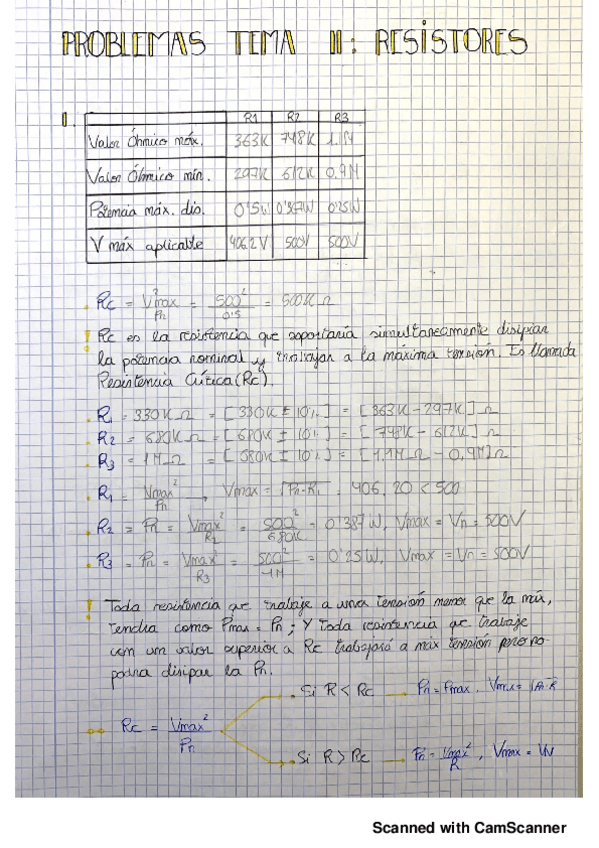 PROBLEMAS TEMA II: RESISTORES
1.
R1 R2 R3
Valor Óhmico máx. 363K 748K 1.1M
Valor Óhmico mín. 297K 612K 0.9M
Potencia máx. dis. 0'5W 0'367W 0'25W
V máx aplicable 406.2V 500V 500V
. Rc = V²max / Pn = 500² / 0'5 = 500K Ω
! Rc es la resistencia que soportaría simultáneamente disipar
la potencia nominal y trabajar a la máxima tensión. Es llamada
Resistencia Crítica (Rc).
. R1 = 330K Ω = [330K ± 10%] = [363K - 297K] Ω
. R2 = 680K Ω = [680K ± 10%] = [748K - 612K] Ω
. R3 = 1M Ω = [580K ± 10%] = [1.1M Ω - 0,9M] Ω
. R1 = Vmax² / Pn → Vmax = √Pn·R1 = 406,20 < 500
. R2 = Pn = Vmax² / R2 = 500² / 680K = 0'387W, Vmax = Vn = 500V
. R3 = Pn = Vmax² / R3 = 500² / 1M = 0'25W, Vmax = Vn = 500V
! Toda resistencia que trabaje a una tensión menor que la máx,
tendrá como Pmax = Pn; Y toda resistencia que trabaje
con un valor superior a Rc trabajará a máx tensión pero no
podrá disipar la Pn.
. Si R < Rc → Pn = Pmax, Vmax = √Pn·R
Rc = Vmax² / Pn
. Si R > Rc → Pn = Vmax² / R, Vmax = Vn
Scanned with CamScanner